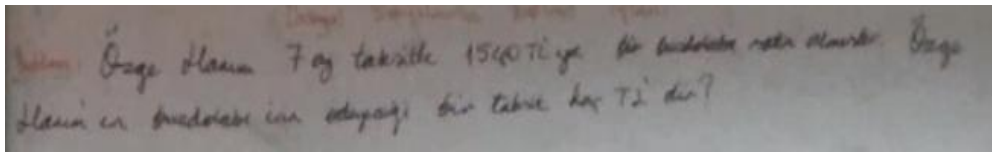 Problem: Özge Hanım 7 ay taksitle 1540 TL ye bir buzdolabı satın almıştır. Özge
Hanım'ın buzdolabı için ödeyeceği bir taksit kaç TL dir?